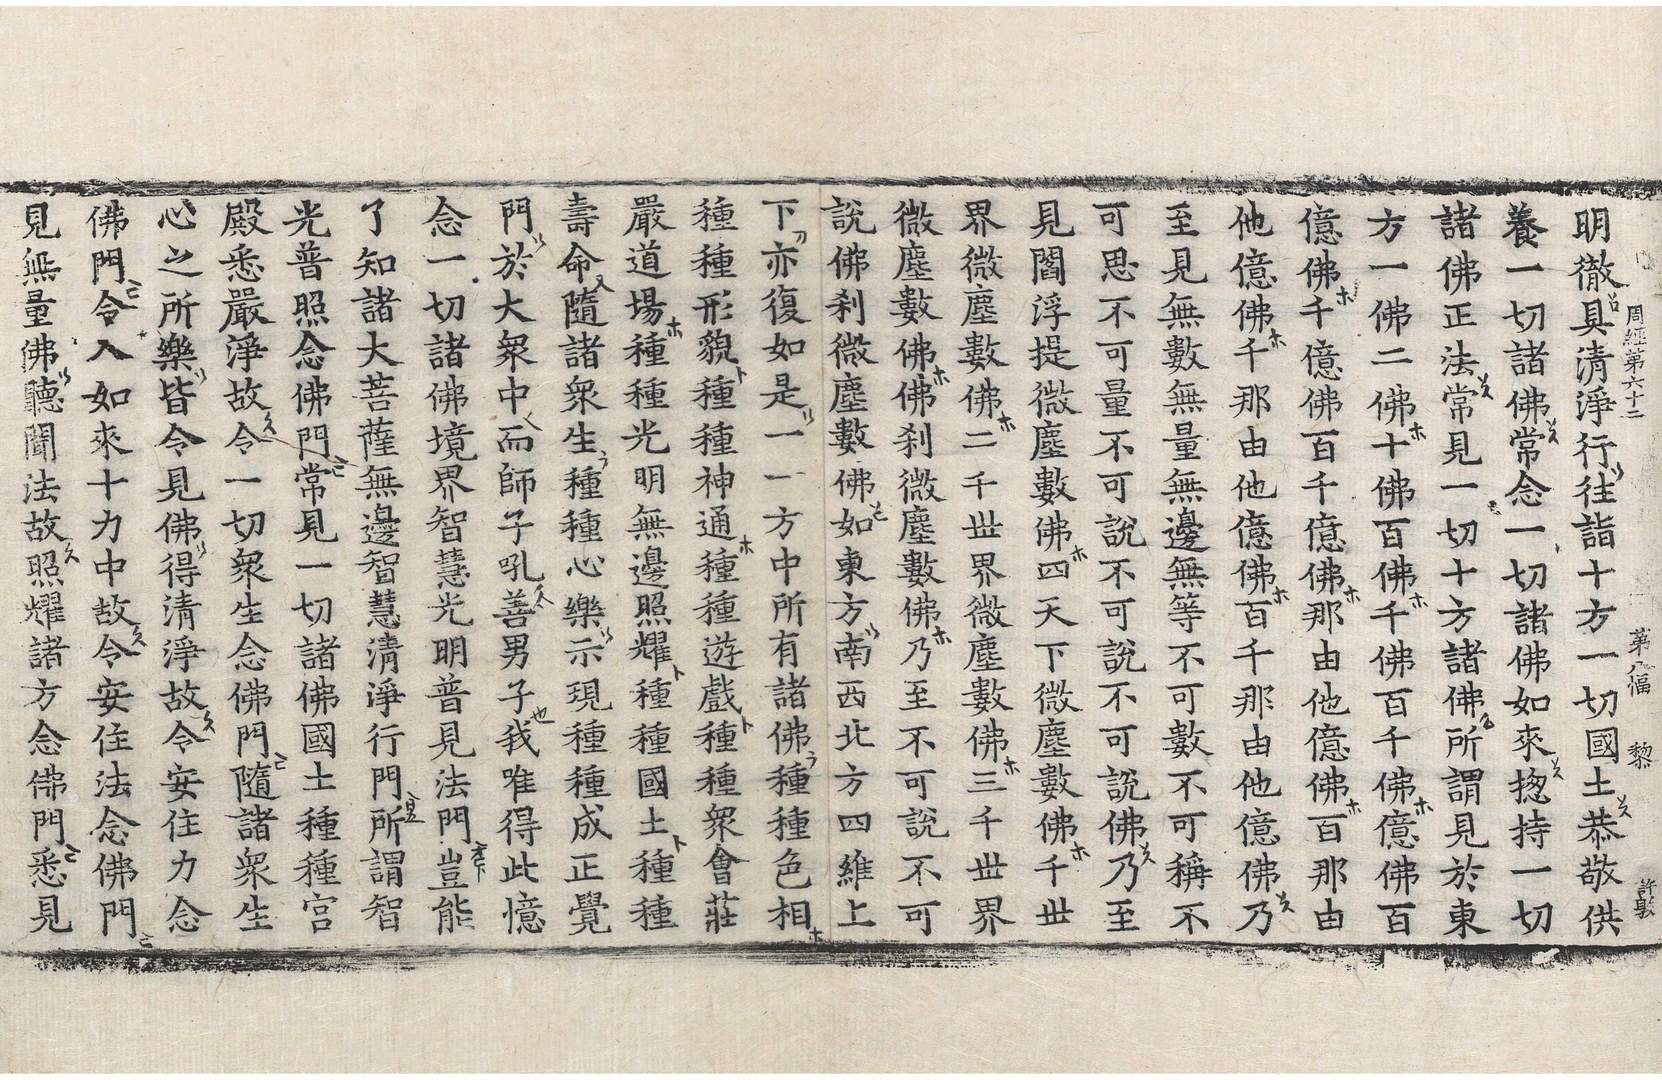 周經第六十二 第八幅 黎
明徹具清淨行往詣十方一切國土恭敬供
養一切諸佛常念一切諸佛如來揔持一切
諸佛正法常見一切十方諸佛所謂見於東
方一佛二佛十佛百佛千佛百千佛億佛百
億佛千億佛百千億佛那由他億佛百那由
他億佛千那由他億佛百千那由他億佛乃
至見無數無量無邊無等不可數不可稱不
可思不可量不可說不可說不可說佛乃至
見閻浮提微塵數佛四天下微塵數佛千世
界微塵數佛二千世界微塵數佛三千世界
微塵數佛佛刹微塵數佛乃至不可說不可
說佛刹微塵數佛如東方南西北方四維上
下亦復如是一一方中所有諸佛種種色相
種種形貌種種神通種種遊戲種種眾會莊
嚴道場種種光明無邊照耀種種國土種種
壽命隨諸眾生種種心樂示現種種成正覺
門於大眾中而師子吼善男子我唯得此憶
念一切諸佛境界智慧光明普見法門豈能
了知諸大菩薩無邊智慧清淨行門所謂智
光普照念佛門常見一切諸佛國土種種宮
殿悉嚴淨故令一切眾生念佛門隨諸眾生
心之所樂皆令見佛得清淨故令安住力念
佛門令入如來十力中故令安住法念佛門
見無量佛聽聞法故照耀諸方念佛門悉見